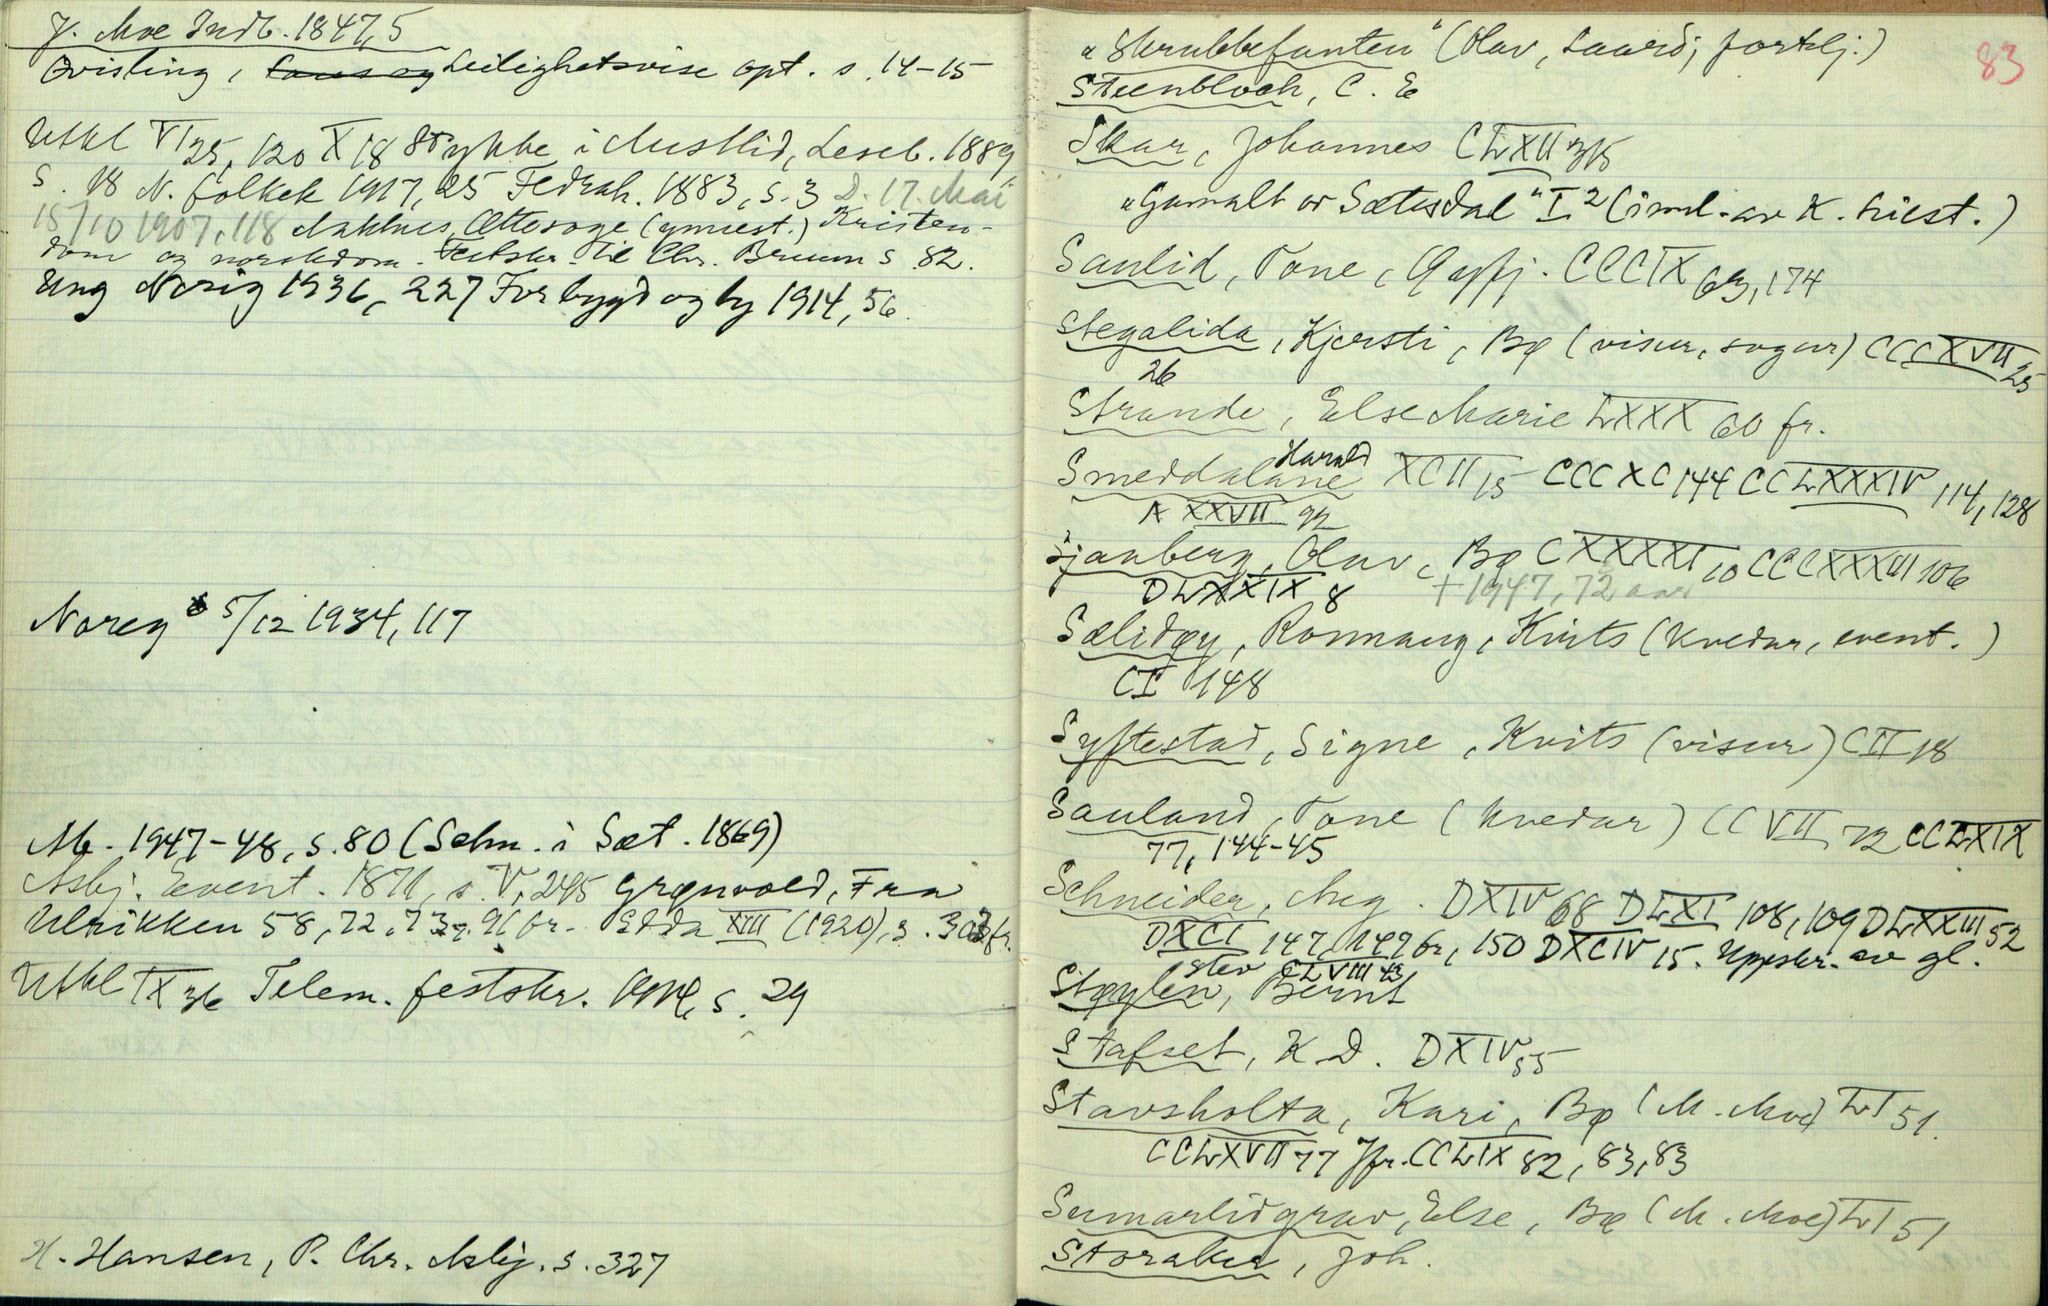 J. Moe Indb. 1847,5
Qvisling, Leilighetsvise opt. s. 14-15
Utkl VI 25, 120 X 18 Stykke i Austlid, Leseb. 1889
s. 18 N. folkek 1917, 25 Fedrah. 1883, s. 3 D. 17. Mai
15/10 1907, 118 Aakhus, Ættesoge (ymest.) Kristen-
dom og norskdom. Festskr. til Chr. Bruun s. 82.
Ung Norig 1936, 227 For bygd og by 1914, 56.
Noreg 5/12 1934, 117
M. 1947-48, s. 80 (Selm. i Sæt. 1869)
Asbj. Event. 1871, s. V, 245 Grønvold, Fra
Ulrikken 58, 72, 73, 91 fr. Edda XIII (1920), s. 303 fr.
Utkl IX 36 Telem. festskr. 1914, s. 29
H. Hansen, P. Chr. Asbj. s. 327
83
"Skrubbefanten" (Olav, Laard; fortelj.)
Steenbloch, C. E
Skar, Johannes CLXII 315
"Gamalt or Sætesdal" I² (iml. av K. Liest.)
Saulid, Tone, Gaffj. CCCIX 63, 174
Stegalida, Kjersti, Bø (visur, sogur) CCCXVII 25
26
Strande, Else Marie LXXX 60 fr.
Smeddalane Harald XCII 15 CCCXC 144 CCLXXXIV 114, 128
A XXVII 92
Sjauberg, Olav, Bø CXXXXI 10 CCCXXXIII 106
DLXXIX 8 † 1947, 72 aar
Sælidøy, Ronnaug, Kvits (kvedar, event.)
CI 148
Syftestad, Signe, Kvits (visur) CII 18
Sauland, Tone (kvedar) CCVII 72 CCLXIX
77, 144-45
Schneider, Aug. DXIV 68 DLXI 108, 109 DLXXIII 52
DXCI 147, 149 fr, 150 DXCIV 15. Uppskr. av gl.
stev CLVIII 43
Støylen, Bernt
Stafset, K. D. DXIV 55
Stavsholta, Kari, Bø (M. Moe) LI 51.
CCLXVII 77 Jfr. CCLIX 82, 83, 83
Sumarlidgrav, Else, Bø (M. Moe) LI 51
Storaker, Joh.